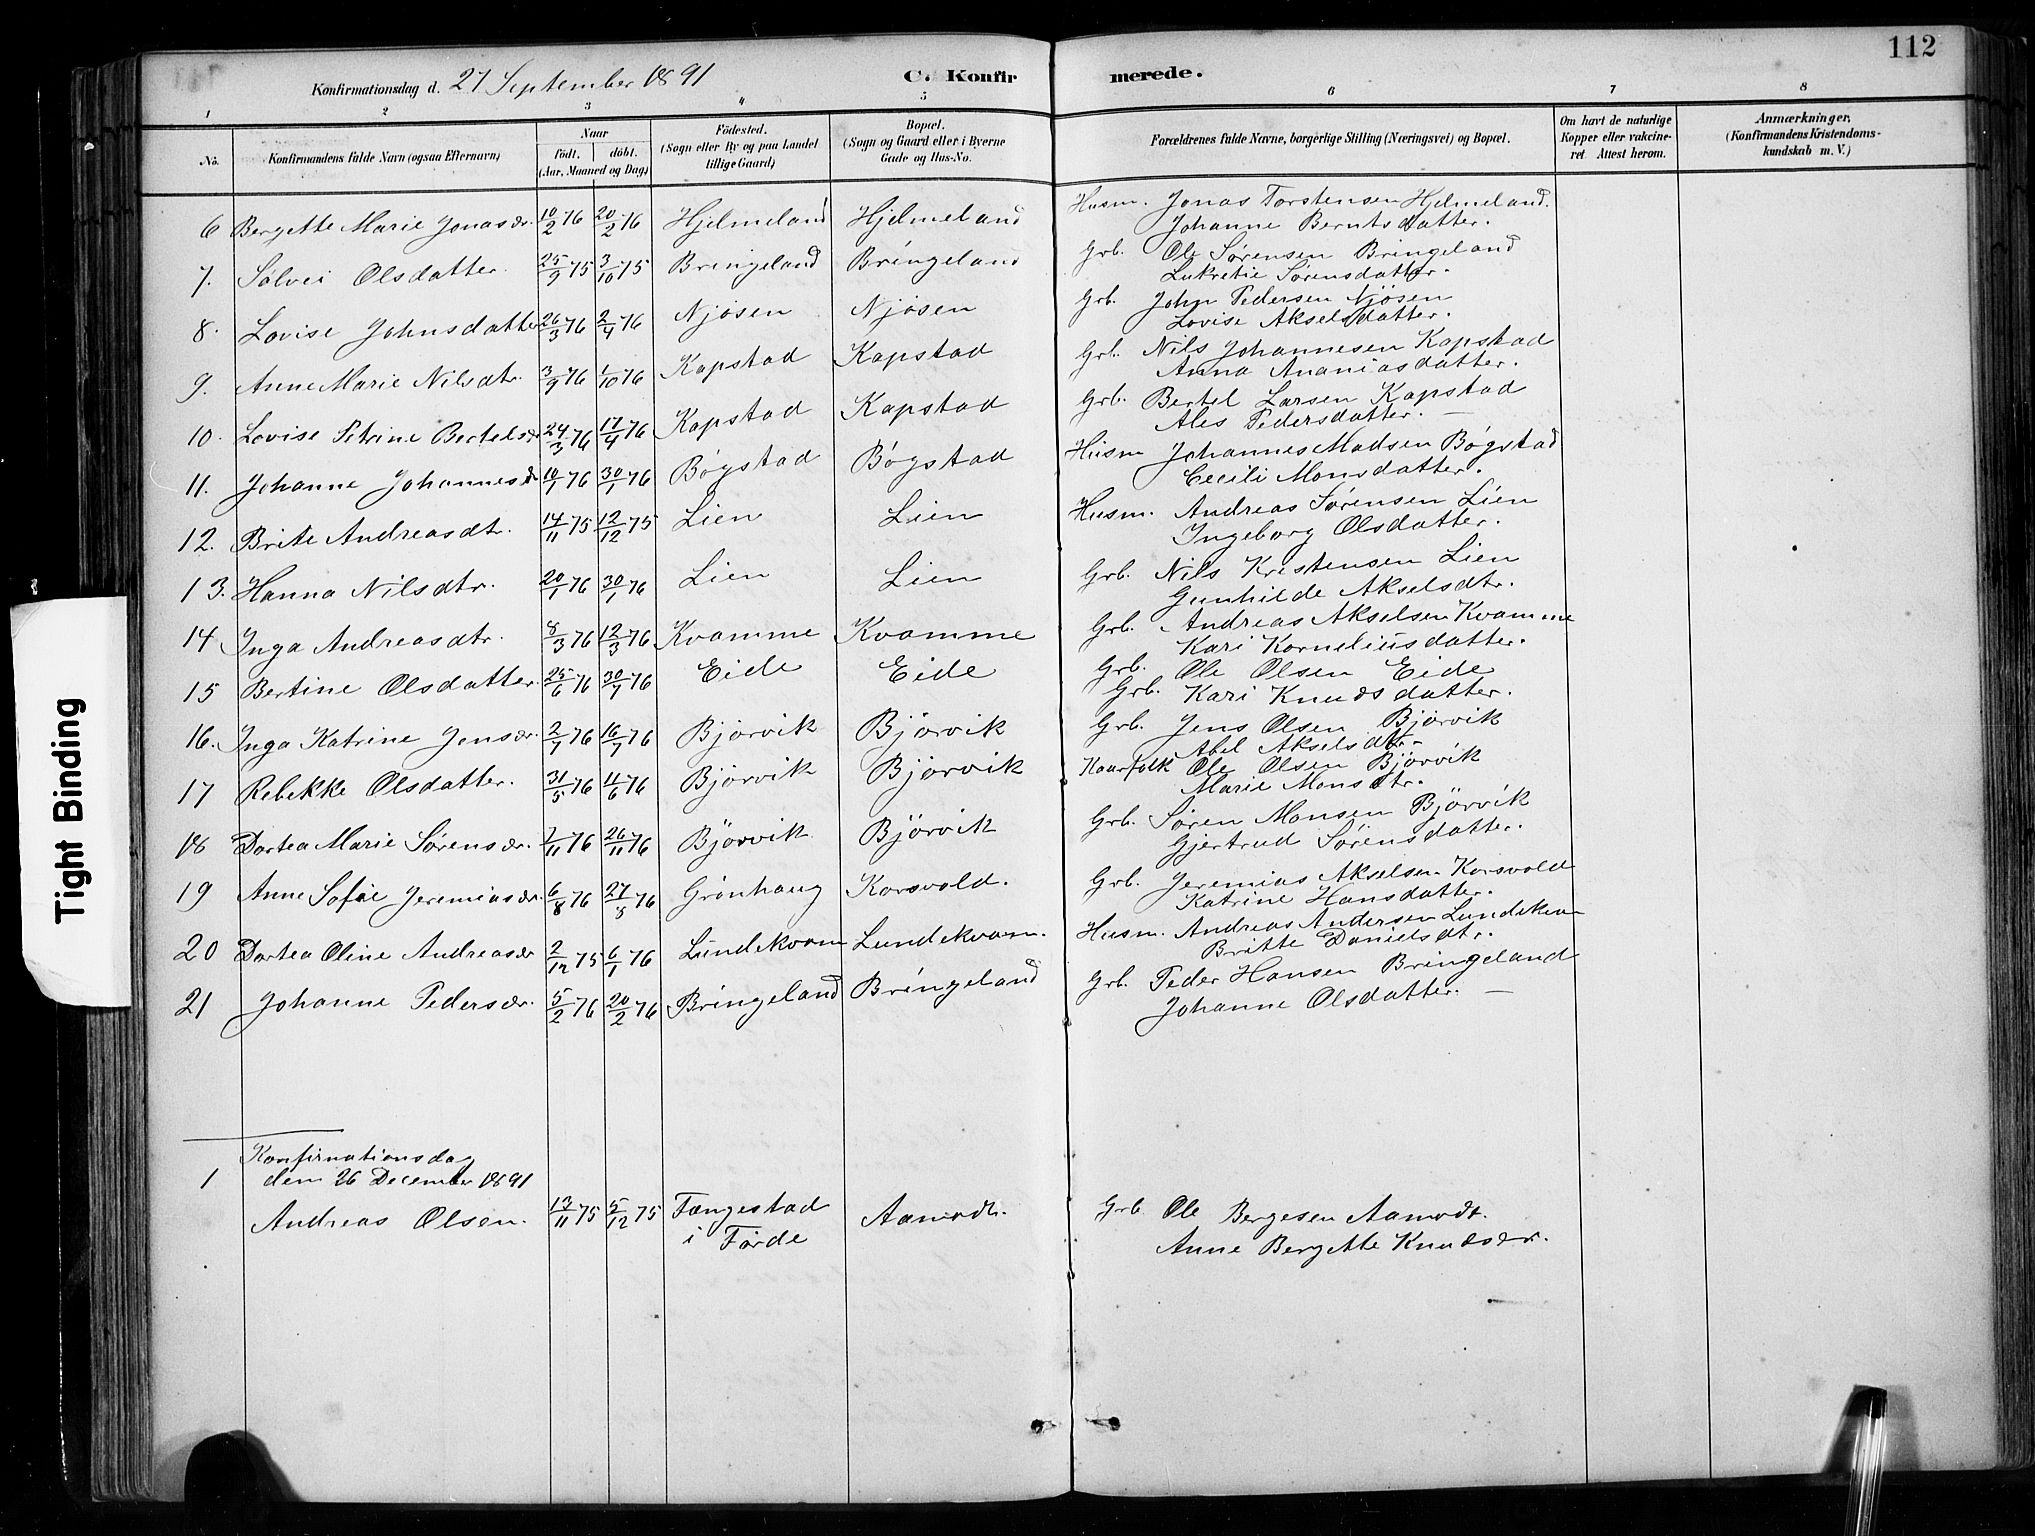 112
Konfirmationsdag d. 27 September 1891 C. Konfir merede.
1 2 3 4 5 6 7 8
No. Konfirmandens fulde Navn (ogsaa Efternavn) Naar födt. döbt. (Aar, Maaned og Dag) Födested. (Sogn eller By og paa Landet tillige Gaard) Bopæl. (Sogn og Gaard eller i Byerne Gade og Hus-No. Forældrenes fulde Navne, borgerlige Stilling (Næringsvei) og Bopæl. Om havt de naturlige Kopper eller vakcineret Attest herom. Anmærkninger. (Konfirmandens Kristendomskundskab m. V.)
6 Bergette Marie Jonasdr. 10/2 76 20/2 76 Hjelmeland Hjelmeland Husm. Jonas Torstensen Hjelmeland.
Johanne Berntsdatter.
7. Sølvei Olsdatter. 25/9 75 3/10 75 Bringeland Bringeland Grb. Ole Sørensen Bringeland
Lukretie Sørensdatter.
8. Lovise Johnsdatter 26/3 76 2/4 76 Njösen Njösen Grb. John Pedersen Njösen
Lovise Akselsdatter.
9. Anne Marie Nilsdtr. 3/9 76 1/10 76 Kapstad Kapstad Grb. Nils Johannesen Kapstad
Anna Ananiasdatter.
10. Lovise Petrine Bertelsdr 24/3 76 17/4 76 Kapstad Kapstad Grb. Bertel Larsen Kapstad
Ales Pedersdatter. —
11. Johanne Johannesdr 10/1 76 30/1 76 Bögstad Bögstad Husm Johannes Madsen Bögstad
Cecili Monsdatter.
12. Brite Andreasdtr. 14/11 75 12/12 75 Lien Lien Husm. Andreas Sørensen Lien
Ingeborg Olsdatter.
13. Hanna Nilsdtr. 20/1 76 30/1 76 Lien Lien Grb. Nils Kristensen Lien
Gunhilde Akselsdtr.
14 Inga Andreasdtr. 8/3 76 12/3 76 Kvamme Kvamme Grb. Andreas Akselsen Kvamme
Kari Korneliusdatter.
15 Bertine Olsdatter. 25/6 76 30/7 76 Eide Eide Grb. Ole Olsen Eide
Grb. Kari Knudsdatter.
16. Inga Katrine Jensdr. 2/7 76 16/7 76 Björvik Björvik Grb. Jens Olsen Björvik
Abel Akselsdtr.
17 Rebekke Olsdatter. 31/5 76 4/6 76 Björvik Björvik Kaarfolk Ole Olsen Björvik
Marie Monsdtr.
18 Dortea Marie Sørensdr. 7/11 76 26/11 76 Björvik Björvik Grb. Søren Monsen Björvik
Gjertrud Sørensdatter.
19 Anne Sofie Jeremiasdr. 6/8 76 27/8 76 Grönhaug Korsvold. Grb. Jeremias Akselsen Korsvold
Katrine Hansdatter.
20 Dortea Oline Andreasdr 2/12 75 6/1 76 Lundekvam Lundekvam. Husm. Andreas Andersen Lundekvam
Britte Danielsdtr.
21 Johanne Pedersdr. 5/2 76 20/2 76 Bringeland Bringeland Grb. Peder Hansen Bringeland
Johanne Olsdatter. —
Konfirmationsdag
1 den 26 December 1891
Andreas Olsen. 13/11 75 5/12 75 Fængestad Aamodt. Grb Ole Bergesen Aamodt.
i Förde Anne Bergette Knudsdr.
Tight Binding